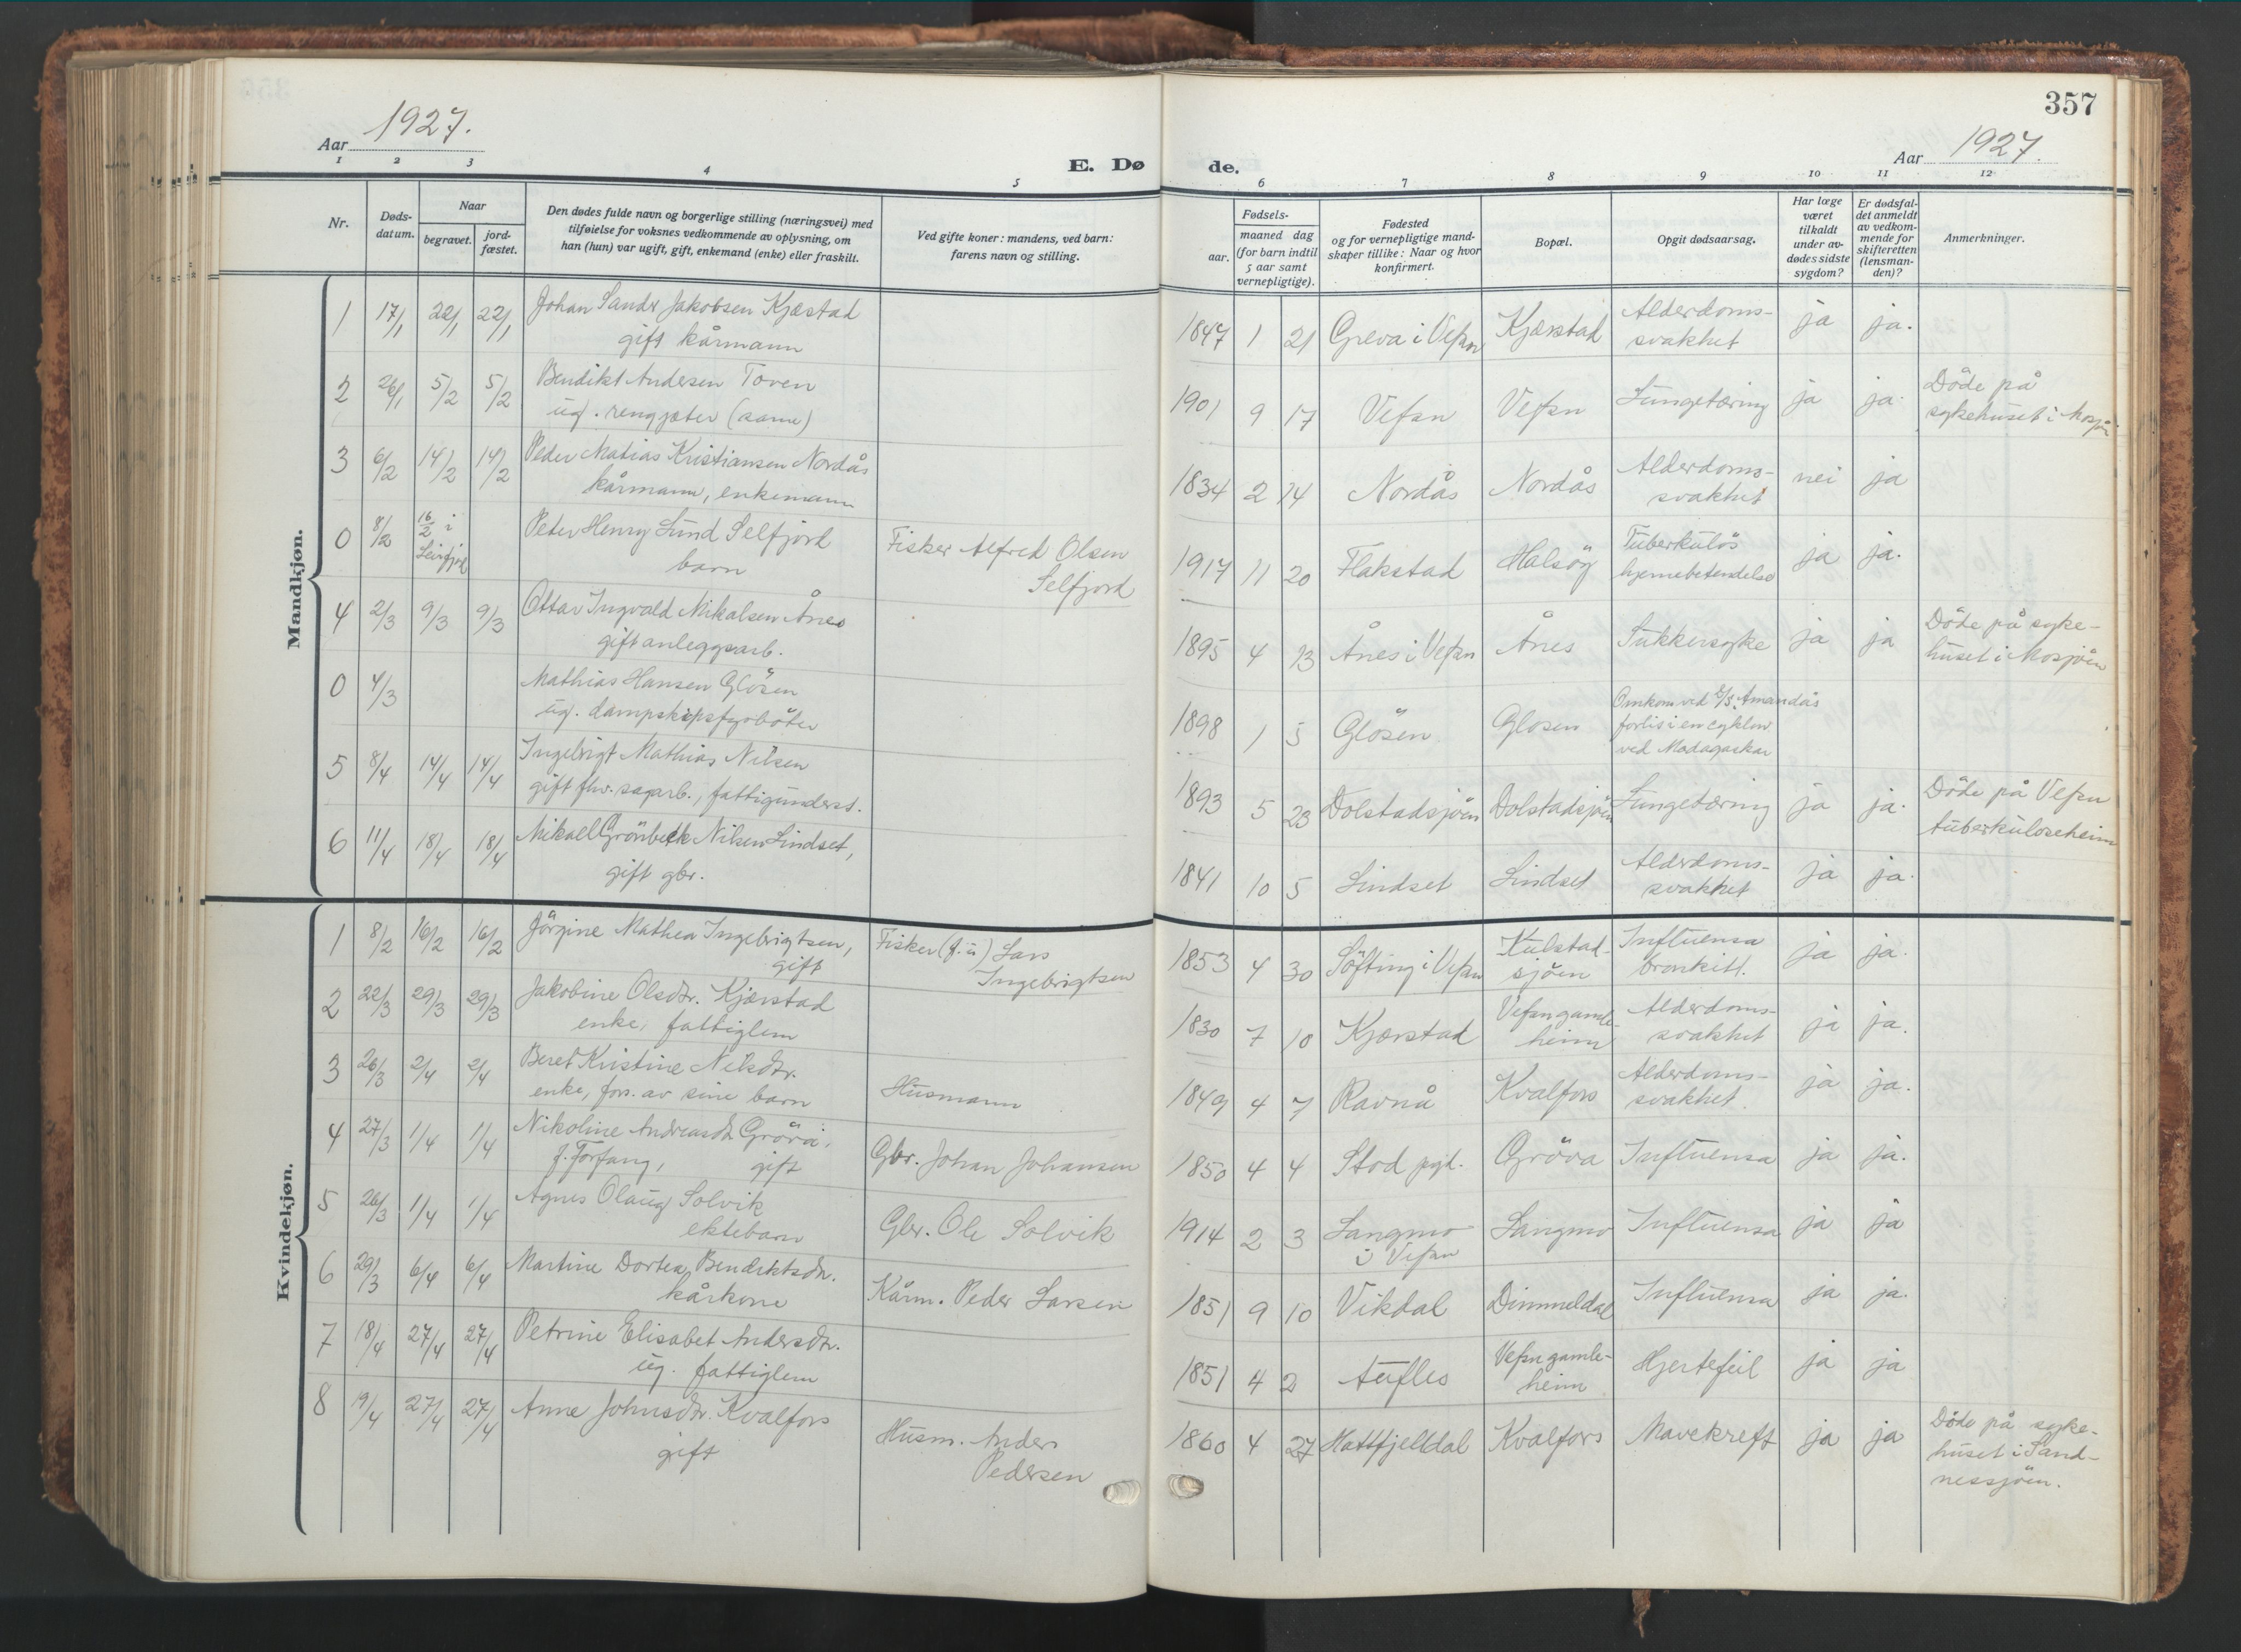 357
Aar 1927.
E. Døde.
Aar 1927.
1 2 3 4 5 6 7 8 9 10 11 12
Nr.
Døds-
datum.
Naar
begravet.
jord-
fæstet.
Den dødes fulde navn og borgerlige stilling (næringsvei) med
tilføielse for voksnes vedkommende av oplysning, om
han (hun) var ugift, gift, enkemand (enke) eller fraskilt.
Ved gifte koner: mandens, ved barn:
farens navn og stilling.
Fødsels-
aar.
maaned dag
(for barn indtil
5 aar samt
vernepligtige).
Fødested
og for vernepligtige mand-
skaper tillike: Naar og hvor
konfirmert.
Bopæl.
Opgit dødsaarsag.
Har læge
været
tilkaldt
under av-
dødes sidste
sygdom?
Er dødsfal-
det anmeldt
av vedkom-
mende for
skifteretten
(lensman-
den)?
Anmerkninger.
Mandkjøn.
1 17/1 22/1 22/1 Johan Sandr Jakobsen Kjærstad
gift kårmann
1847 1 21 Greva i Vefsn Kjærstad Alderdoms-
svakhet ja ja.
2 26/1 5/2 5/2 Bendikt Andersen Toven
ug. rengjæter (same)
1901 9 17 Vefsn Vefsn Lungetæring ja ja. Döde på
sykehuset i Mosjöen
3 6/2 14/2 14/2 Peder Matias Kristiansen Nordås
kårmann, enkemann
1834 2 14 Nordås Nordås Alderdoms-
svakhet nei ja
0 8/2 16/2 i
Leirfjord
Peter Henry Lund Selfjord
barn
Fisker Alfred Olsen
Selfjord
1917 11 20 Flakstad Halsöy Tuberkulös
hjernebetendelse ja ja.
4 2/3 9/3 9/3 Ottar Ingvald Mikalsen Ånes
gift anleggsarb.
1895 4 13 Ånes i Vefsn Ånes Sukkersyke ja ja Döde på syke-
huset i Mosjöen
0 4/3 Mathias Hansen Glösen
ug. dampskipsfyrböter
1898 1 5 Glösen Glosen Omkom ved S/S. Amandas
forlis i en cyklon
ved Madagaskar
5 8/4 14/4 14/4 Ingebrigt Mathias Nilsen
gift fhv. sagarb., fattigunderst.
1893 5 23 Dolstadsjöen Dolstadsjöen Lungetæring ja ja. Döde på Vefsn
tuberkuloseheim
6 11/4 18/4 18/4 Mikael Grönbeck Nilsen Lindset,
gift gbr.
1841 10 5 Lindset Lindset Alderdoms-
svakhet ja ja.
Kvindekjøn.
1 8/2 16/2 16/2 Jörgine Mathea Ingebrigtsen,
gift
Fisker (f. u) Lars
Ingebrigtsen
1853 4 30 Söfting i Vefsn Kulstad-
sjöen Influensa
bronkitt. ja ja.
2 22/3 29/3 29/3 Jakobine Olsdtr. Kjærstad
enke, fattiglem
1830 7 10 Kjærstad Vefsn gamle-
heim Alderdoms-
svakhet ja ja.
3 26/3 2/4 2/4 Beret Kristine Nilsdtr.
enke, fors. av sine barn
Husmann
1849 4 7 Ravnå Kvalfors Alderdoms-
svakhet. ja ja.
4 27/3 1/4 1/4 Nikoline Andreasdtr Gröva,
f. Forfang, gift
Gbr. Johan Johansen
1850 4 4 Stod pgd. Gröva Influensa ja ja.
5 26/3 1/4 1/4 Agnes Olaug Solvik
ektebarn
Gbr. Ole Solvik
1914 2 3 Langmo
i Vefsn Langmo Influensa ja ja
6 29/3 6/4 6/4 Martine Dortea Bendiktsdtr.
kårkone
Kårm. Peder Larsen
1851 9 10 Vikdal Dimmeldal Influensa ja ja.
7 18/4 27/4 27/4 Petrine Elisabet Andersdtr.
ug. fattiglem
1851 4 2 Aufles Vefsn gamle-
heim Hjertefeil ja ja
8 19/4 27/4 27/4 Anne Johnsdtr. Kvalfors
gift
Husm. Anders
Pedersen
1860 4 27 Hattfjelldal Kvalfors Mavekreft ja ja Döde på syke-
huset i Sand-
nessjöen.